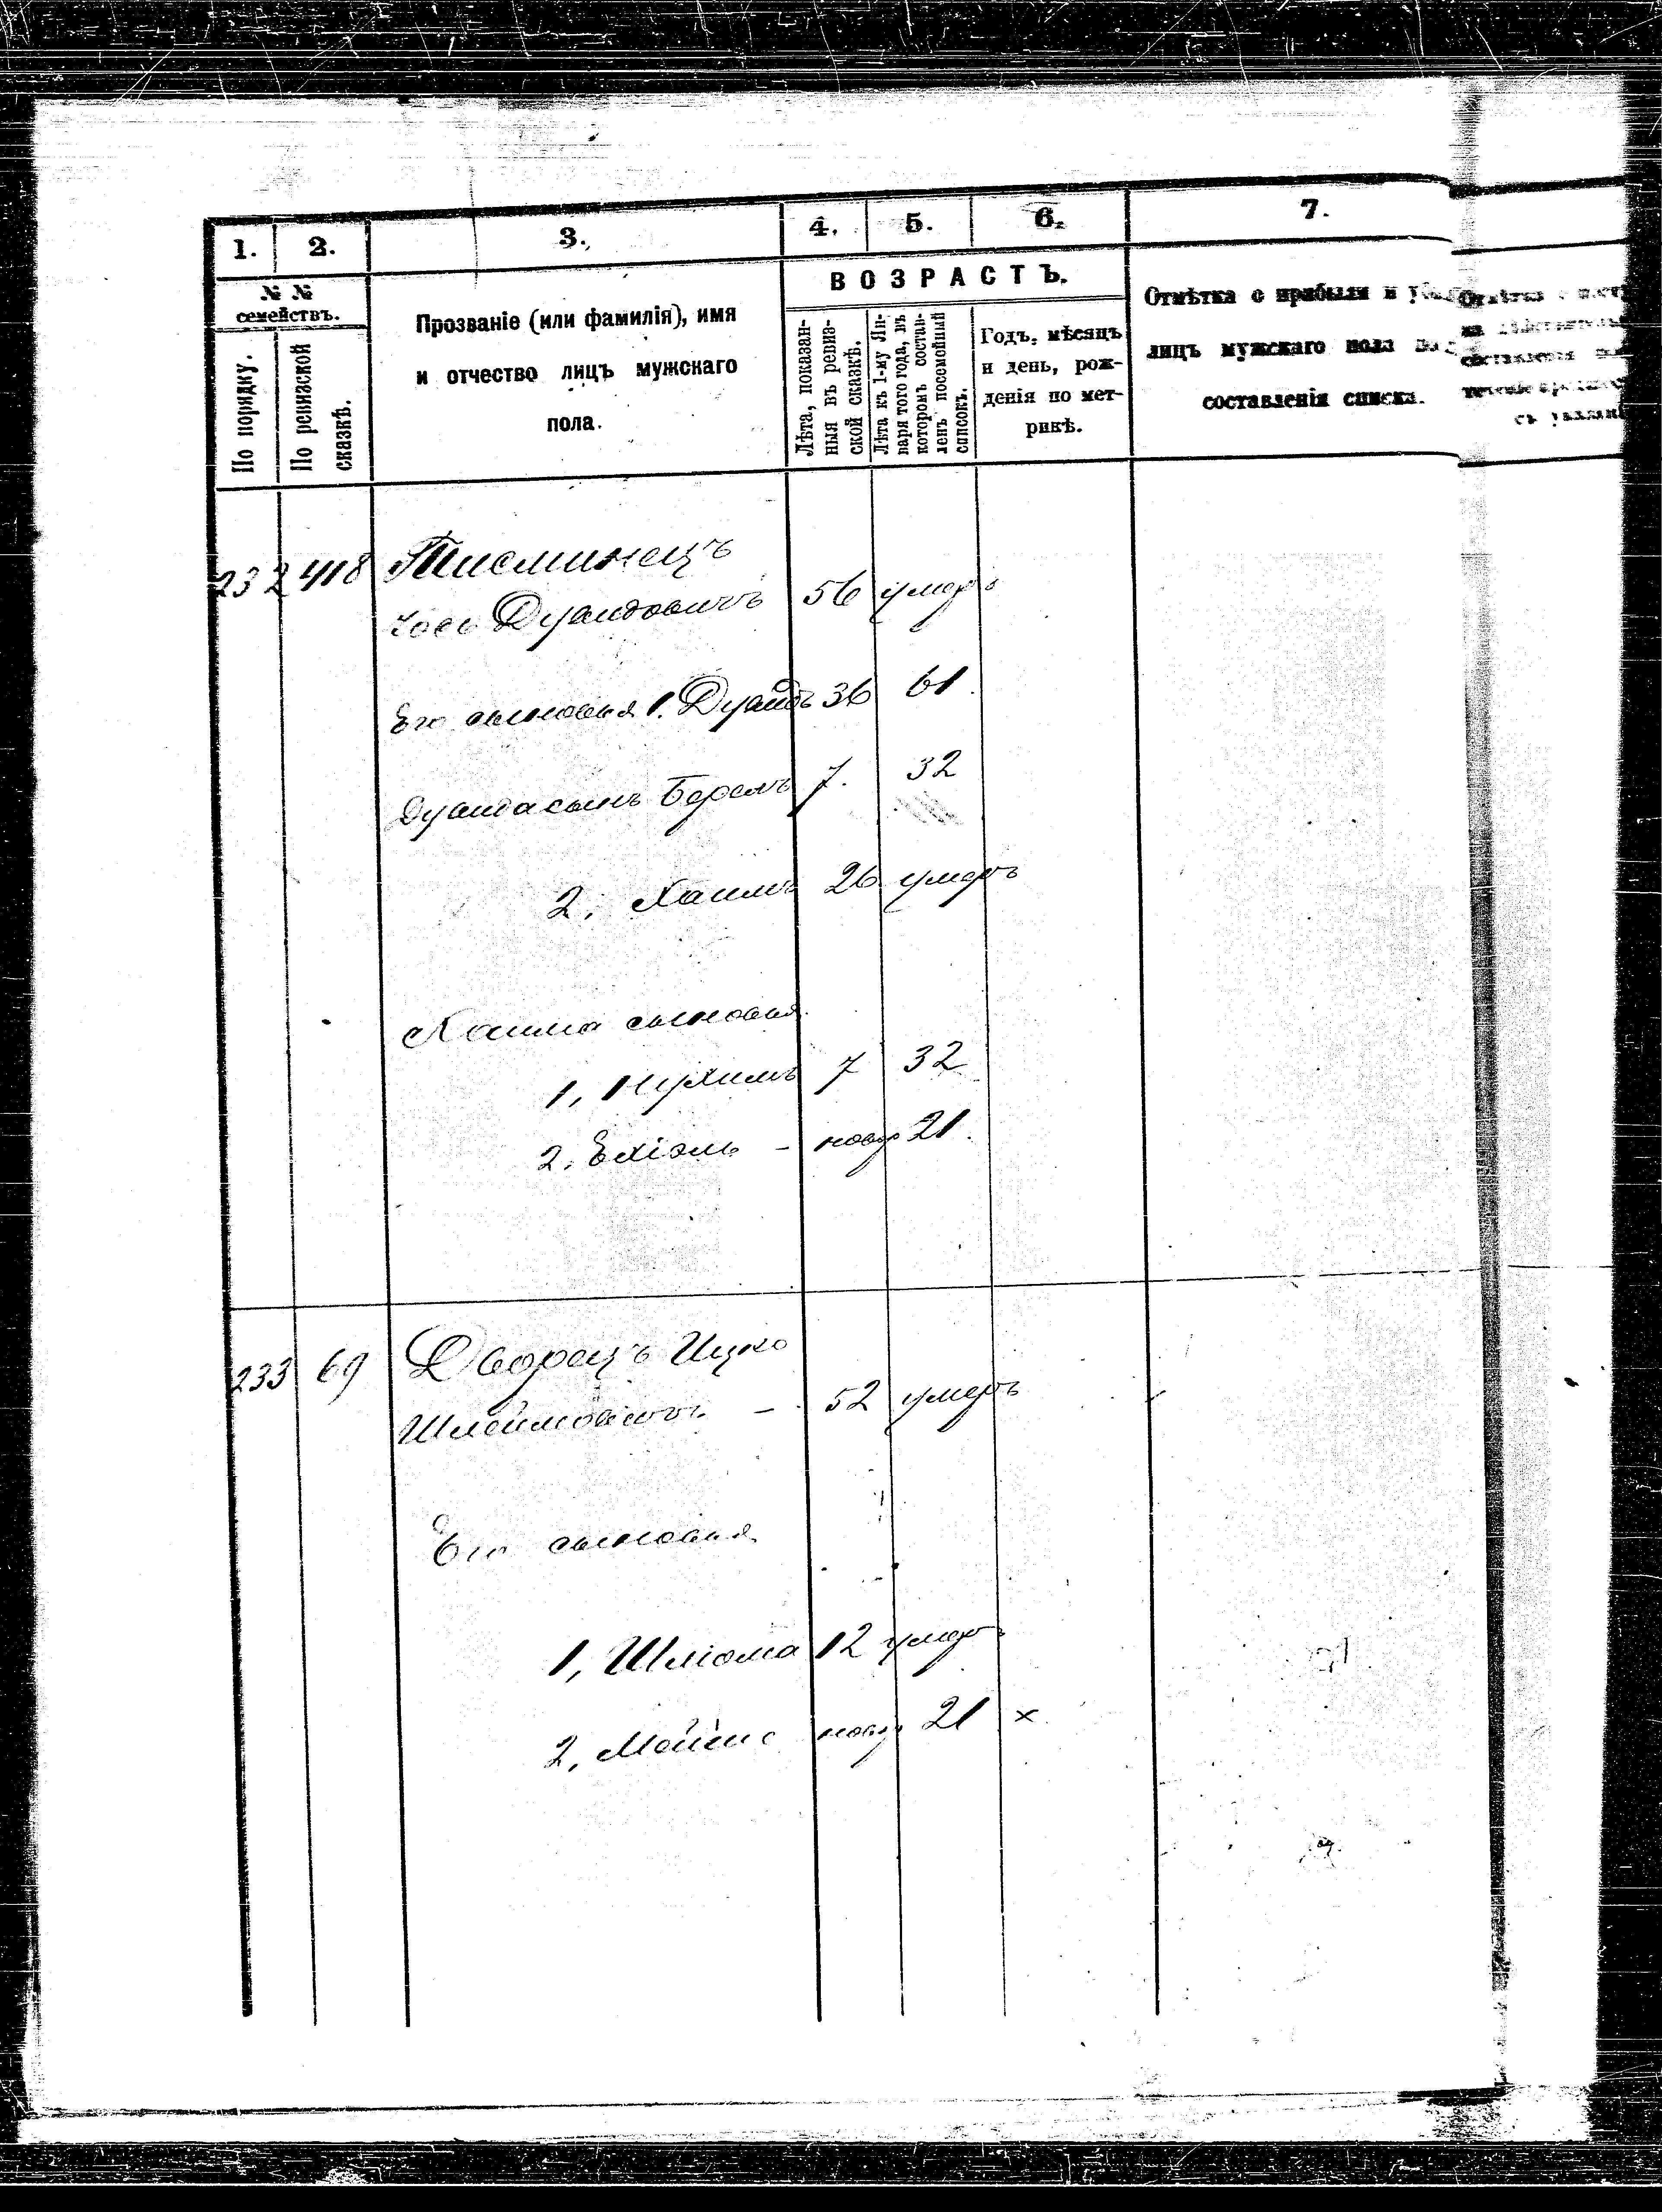 1. 2. 3. 4. 5. 6. 7.
№ №
семействъ.
По порядку.
По ревизской
сказкѣ.
Прозваніе (или фамилія), имя
и отчество лицъ мужскаго
пола.
ВОЗРАСТЪ.
Лѣта, показан-
ныя въ ревиз-
ской сказкѣ.
Лѣта къ 1-му Ян-
варя того года, въ
которомъ состав-
ленъ посемейный
списокъ.
Годъ, мѣсяцъ
и день, рож-
денія по мет-
рикѣ.
Отмѣтка о прибыли и
лицъ мужскаго пола
составленія списка.
232 418 Тисминецъ
Іось Дувидовичъ 56 умеръ
Его сыновья 1. Дувидъ 36 61.
Дувида сынъ Берель 7. 32
2, Хаимъ 26 умеръ
Хаима сыновья
1, 7 32
2, Ехіэль - новор 21.
233 69 Дворецъ Ицко
Шлеймовичъ - 52 умеръ
Его сыновья
1, Шліома 12 умеръ
2, новор 21 х